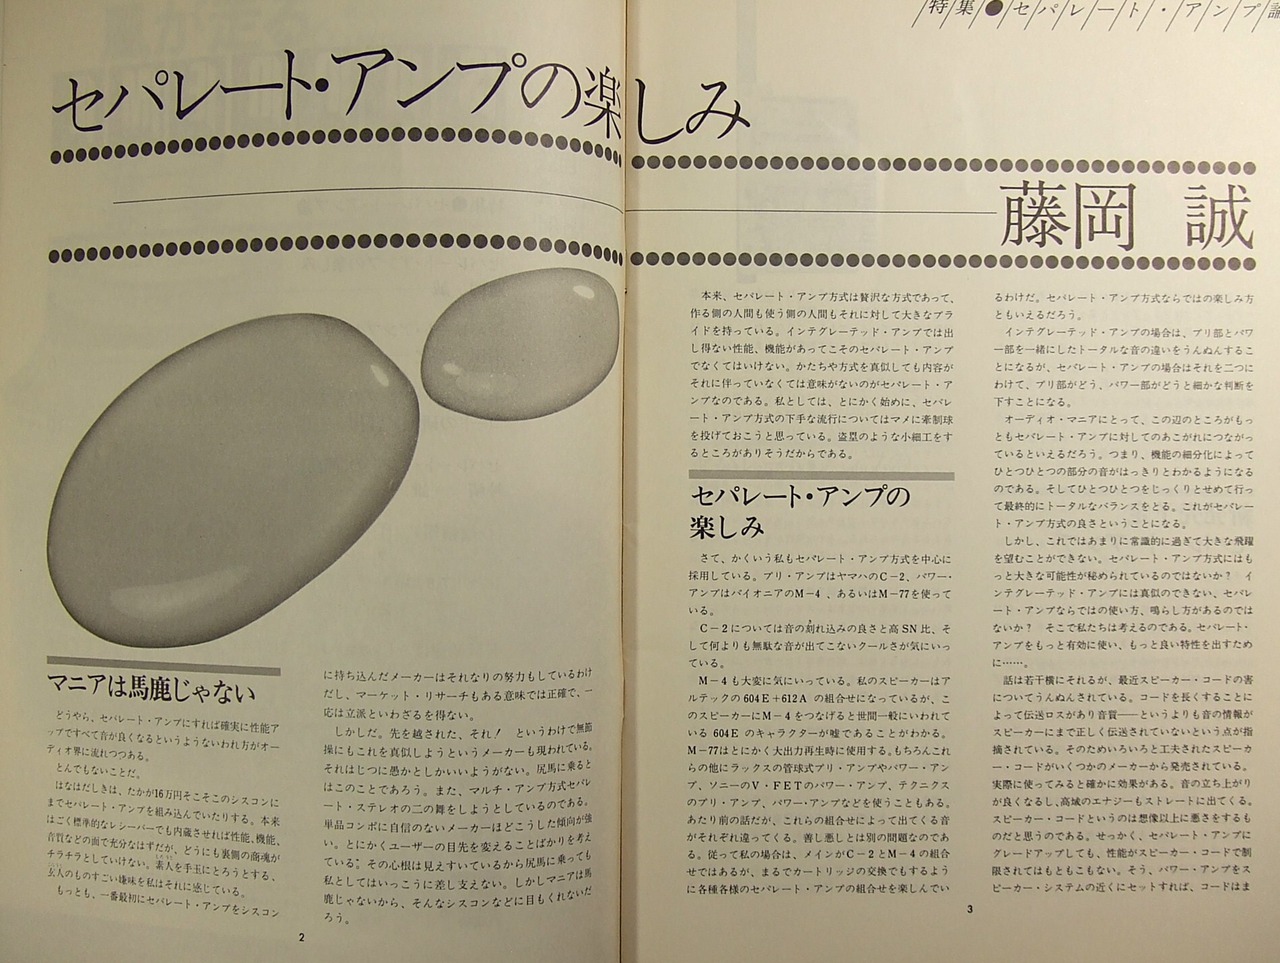 特集●セパレート・アンプ論
セパレート・アンプの楽しみ
藤岡 誠
マニアは馬鹿じゃない
どうやら、セパレート・アンプにすれば確実に性能ア
ップですべて音が良くなるというようないわれ方がオー
ディオ界に流れつつある。
とんでもないことだ。
はなはだしきは、たかが16万円そこそこのシスコンに
までセパレート・アンプを組み込んでいたりする。本来
はごく標準的なレシーバーでも内蔵させれば性能、機能、
音質などの面で充分なはずだが、どうにも裏側の商魂が
チラチラとしていけない。素人を手玉にとろうとする、
玄人のものすごい嫌味を私はそれに感じている。
もっとも、一番最初にセパレート・アンプをシスコン
に持ち込んだメーカーはそれなりの努力もしているわけ
だし、マーケット・リサーチもある意味では正確で、一
応は立派といわざるを得ない。
しかしだ。先を越された、それ！ というわけで無節
操にもこれを真似しようというメーカーも現われている。
それはじつに愚かとしかいいようがない。尻馬に乗ると
はこのことであろう。また、マルチ・アンプ方式セパレ
ート・ステレオの二の舞をしようとしているのである。
単品コンポに自信のないメーカーほどこうした傾向が強
い。とにかくユーザーの目先を変えることばかりを考え
ている。その心根は見えすいているから尻馬に乗っても
私としてはいっこうに差し支えない。しかしマニアは馬
鹿じゃないから、そんなシスコンなどに目もくれないだ
ろう。
2
本来、セパレート・アンプ方式は贅沢な方式であって、
作る側の人間も使う側の人間もそれに対して大きなプラ
イドを持っている。インテグレーテッド・アンプでは出
し得ない性能、機能があってこそのセパレート・アンプ
でなくてはいけない。かたちや方式を真似しても内容が
それに伴っていなくては意味がないのがセパレート・ア
ンプなのである。私としては、とにかく始めに、セパレ
ート・アンプ方式の下手な流行についてはマメに牽制球
を投げておこうと思っている。盗塁のような小細工をす
るところがありそうだからである。
セパレート・アンプの
楽しみ
さて、かくいう私もセパレート・アンプ方式を中心に
採用している。プリ・アンプはヤマハのC−2、パワー・
アンプはパイオニアのM−4、あるいはM−77を使って
いる。
C−2については音の刻れ込みの良さと高SN比、そ
して何よりも無駄な音が出てこないクールさが気にいっ
ている。
M−4も大変に気にいっている。私のスピーカーはア
ルテックの604E＋612Aの組合せになっているが、こ
のスピーカーにM−4をつなげると世間一般にいわれて
いる604Eのキャラクターが嘘であることがわかる。
M−77はとにかく大出力再生時に使用する。もちろんこれ
らの他にラックスの管球式プリ・アンプやパワー・アン
プ、ソニーのV・FETのパワー・アンプ、テクニクス
のプリ・アンプ、パワー・アンプなどを使うこともある。
あたり前の話だが、これらの組合せによって出てくる音
がそれぞれ違ってくる。善し悪しとは別の問題なのであ
る。従って私の場合は、メインがC−2とM−4の組合
せではあるが、まるでカートリッジの交換でもするよう
に各種各様のセパレート・アンプの組合せを楽しんでい
るわけだ。セパレート・アンプ方式ならではの楽しみ方
ともいえるだろう。
インテグレーテッド・アンプの場合は、プリ部とパワ
ー部を一緒にしたトータルな音の違いをうんぬんするこ
とになるが、セパレート・アンプの場合はそれを二つに
わけて、プリ部がどう、パワー部がどうと細かな判断を
下すことになる。
オーディオ・マニアにとって、この辺のところがもっ
ともセパレート・アンプに対してのあこがれにつながっ
ているといえるだろう。つまり、機能の細分化によって
ひとつひとつの部分の音がはっきりとわかるようになる
のである。そしてひとつひとつをじっくりとせめて行っ
て最終的にトータルなバランスをとる。これがセパレー
ト・アンプ方式の良さということになる。
しかし、これではあまりに常識的に過ぎて大きな飛躍
を望むことができない。セパレート・アンプ方式にはも
っと大きな可能性が秘められているのではないか？ イ
ンテグレーテッド・アンプには真似のできない、セパレ
ート・アンプならではの使い方、鳴らし方があるのでは
ないか？ そこで私たちは考えるのである。セパレート・
アンプをもっと有効に使い、もっと良い特性を出すため
に……。
話は若干横にそれるが、最近スピーカー・コードの害
についてうんぬんされている。コードを長くすることに
よって伝送ロスがあり音質――というよりも音の情報が
スピーカーにまで正しく伝送されていないという点が指
摘されている。そのためいろいろと工夫されたスピーカ
ー・コードがいくつかのメーカーから発売されている。
実際に使ってみると確かに効果がある。音の立ち上がり
が良くなるし、高域のエナジーもストレートに出てくる。
スピーカー・コードというのは想像以上に悪さをするも
のだと思うのである。せっかく、セパレート・アンプに
グレードアップしても、性能がスピーカー・コードで制
限されてはもともこもない。そう、パワー・アンプをス
ピーカー・システムの近くにセットすれば、コードはま
3